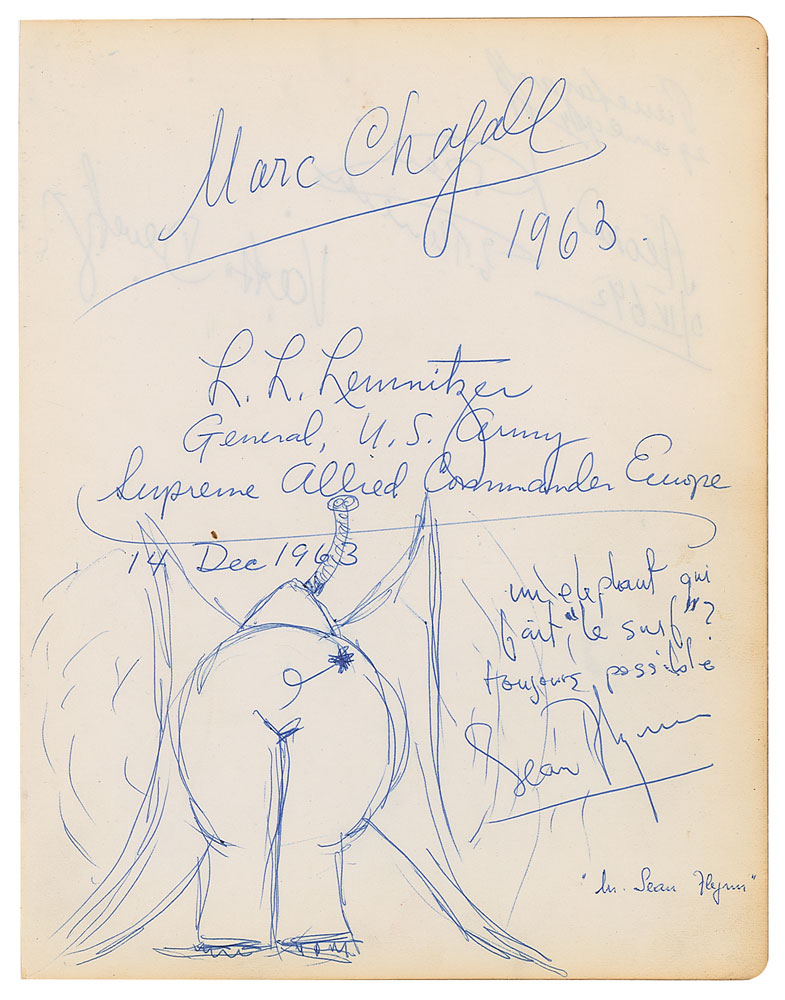 Marc Chagall
1963.
L. L. Lemnitzer
General, U.S. Army
Supreme Allied Commander Europe
14 Dec 1963
un elephant qui
fait "le surf"?
toujours possible
Sean Flynn
"M. Sean Flynn"